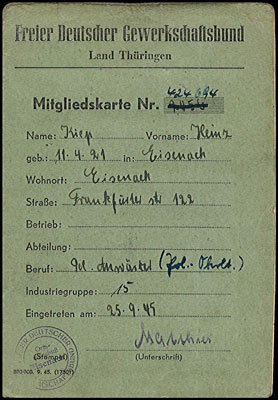 Freier Deutscher Gewerkschaftsbund
Land Thüringen
424 694
Mitgliedskarte Nr.
Name: Kiep Vorname: Heinz
geb.: 11.4.21 in: Eisenach
Wohnort: Eisenach
Straße: Frankfurter str 122
Betrieb:
Abteilung:
Beruf:
Industriegruppe: 15
Eingetreten am: 25.9.45
(Stempel) (Unterschrift)